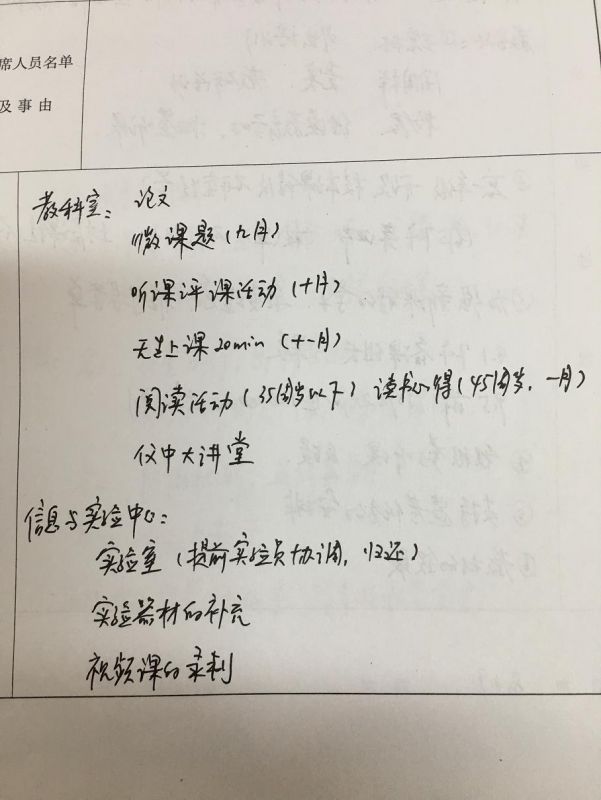 席人员名单
及事由
教科室： 论文
微课题（九月）
听课评课活动（十月）
无生上课20min（十一月）
阅读活动（35周岁以下） 读书心得（45周岁，一月）
仪中大讲堂
信息与实验中心：
实验室（提前实验员协调，归还）
实验器材的补充
视频课的录制